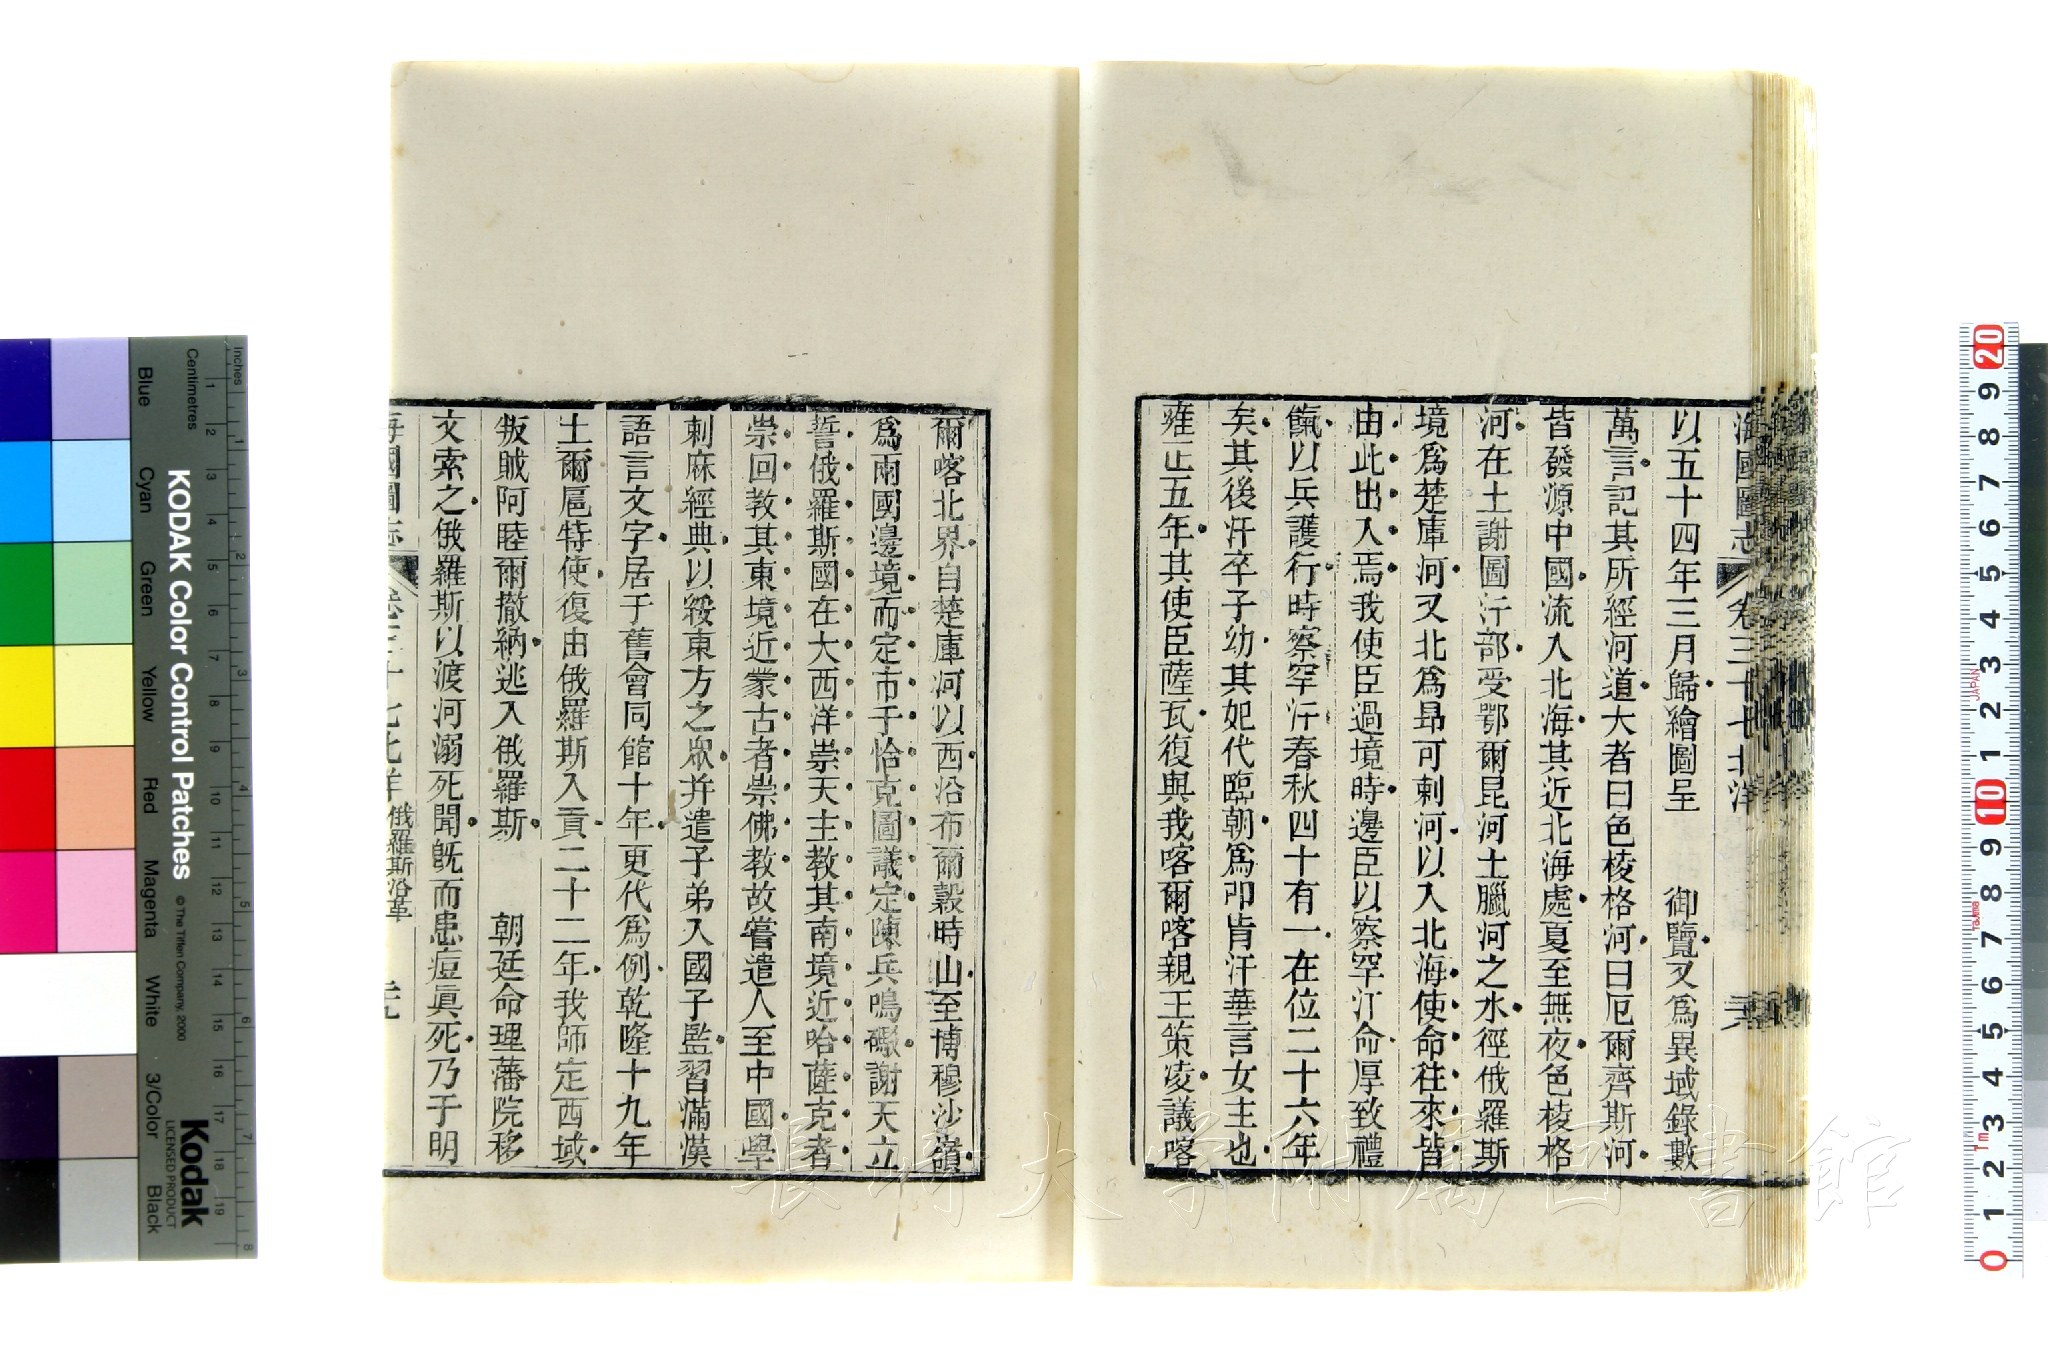 海國圖志 卷三十七 北洋 三六
以五十四年三月歸繪圖呈 御覽又爲異域錄數
萬言記其所經河道大者曰色棱格河曰厄爾齊斯河
皆發源中國流入北海其近北海處夏至無夜色棱格
河在土謝圖汗部受鄂爾昆河土臘河之水徑俄羅斯
境爲楚庫河又北爲昻可剌河以入北海使命往來皆
由此出入焉我使臣過境時邊臣以察罕汗命厚致禮
餼以兵護行時察罕汗春秋四十有一在位二十六年
矣其後汗卒子幼其妃代臨朝爲叩肯汗華言女主也
雍正五年其使臣薩瓦復與我喀爾喀親王策凌議喀
爾喀北界自楚庫河以西沿布爾穀時山至博穆沙嶺
爲兩國邊境而定市于恰克圖議定陳兵鳴礮謝天立
誓俄羅斯國在大西洋崇天主教其南境近哈薩克者
崇回教其東境近蒙古者崇佛教故嘗遣人至中國學
剌麻經典以綏東方之衆并遣子弟入國子監習滿漢
語言文字居于舊會同館十年更代爲例乾隆十九年
土爾扈特使復由俄羅斯入貢二十二年我師定西域
叛賊阿睦爾撒納逃入俄羅斯 朝廷命理藩院移
文索之俄羅斯以渡河溺死聞旣而患痘眞死乃于明
海國圖志 卷三十七 北洋 俄羅斯沿革
KODAK Color Control Patches
© The Tiffen Company, 2000
Kodak
LICENSED PRODUCT
Inches
Centimetres
Blue
Cyan
Green
Yellow
Red
Magenta
White
3/Color
Black
JAPAN
長崎大学附属図書館